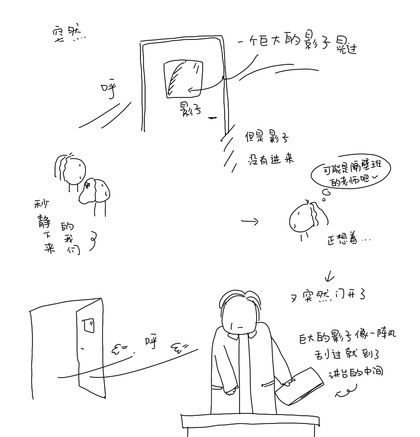 突然
一个巨大的影子晃过
呼
影子
但是影子
没有进来
秒静下来
的我们
可能是隔壁班
的老师吧
正想着...
突然门开了
呼
巨大的影子像一阵风
刮过就到了
讲台的中间